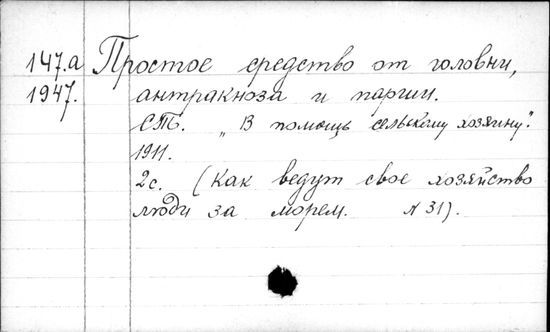 147.а Простое средство от головни,
1947. антракноза и паршии.
СПб. „В помощь сельскому хозяину".
1911.
2 с. (Как ведут свое хозяйство
люди за морем. № 31).